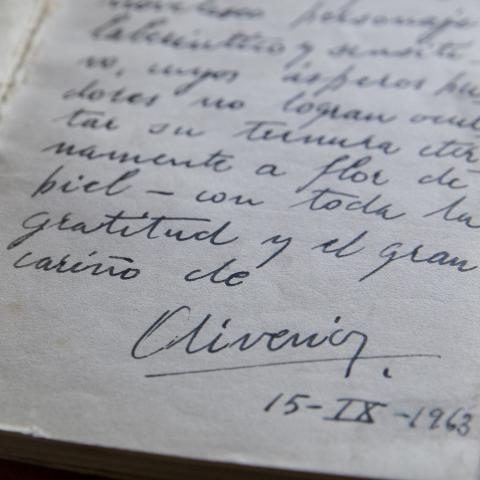 novelesco personaje
laberíntico y sensiti-
vo, cuyos ásperos pu-
dores no logran ocul
tar su ternura eter
namente a flor de
piel — con toda la
gratitud y el gran
cariño de
Oliverio
15-IX-1963